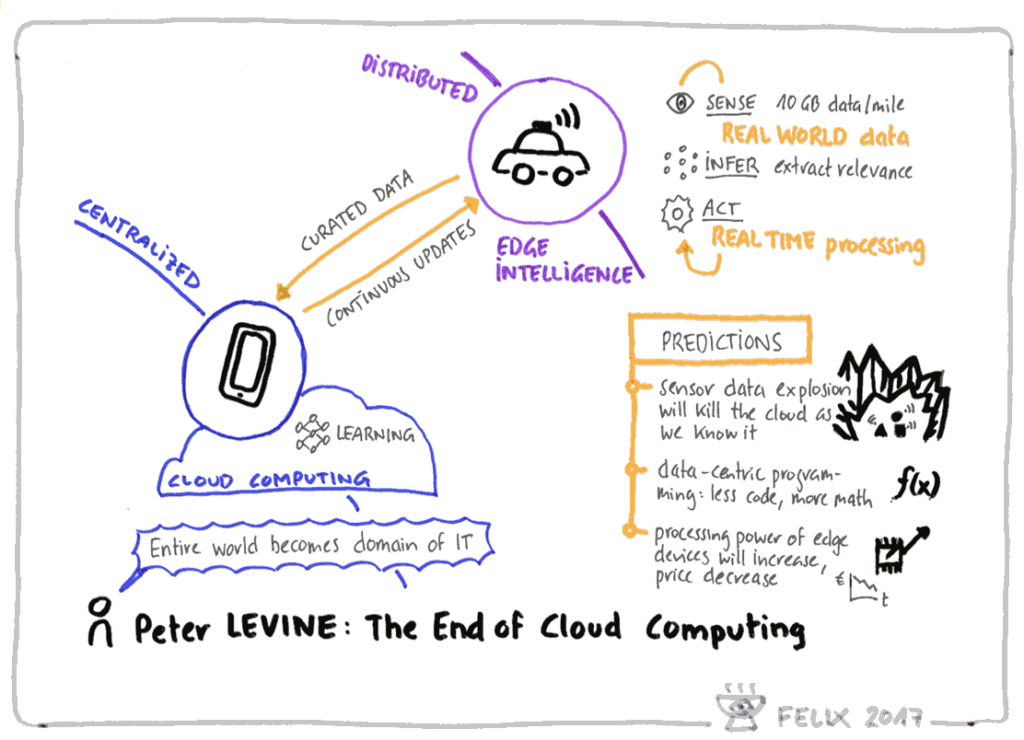 DISTRIBUTED
EDGE
INTELLIGENCE
CENTRALIZED
CURATED DATA
CONTINUOUS UPDATES
LEARNING
CLOUD COMPUTING
Entire world becomes domain of IT
SENSE 10 GB data/mile
REAL WORLD data
INFER extract relevance
ACT
REAL TIME processing
PREDICTIONS
sensor data explosion
will kill the cloud as
we know it
data-centric program-
ming: less code, more math
f(x)
processing power of edge
devices will increase,
price decrease
€
t
Peter LEVINE: The End of Cloud Computing
FELIX 2017